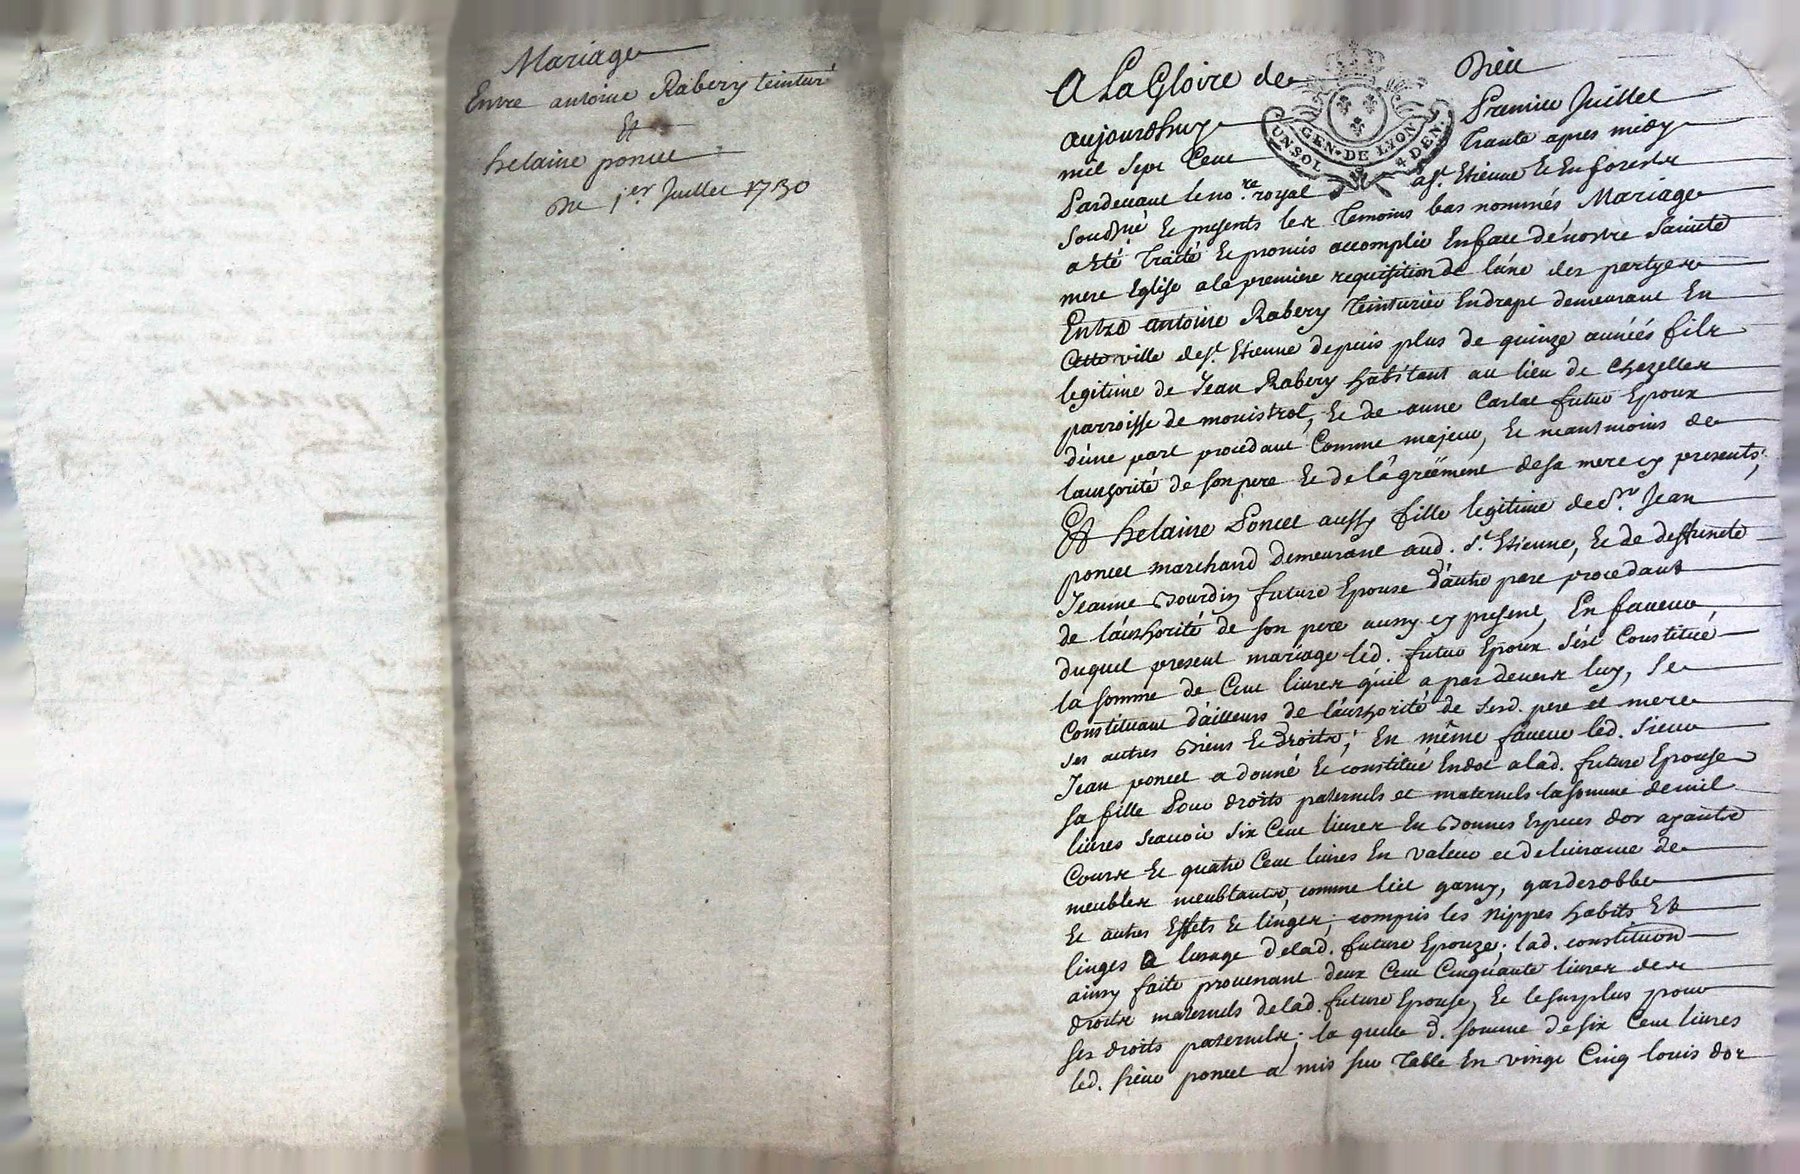 Mariage
Entre antoine Rabery teinturie
Et
helaine poncet
Du 1.er Juillet 1730
A La Gloire de Dieu
aujourdhuy Premier Juillet
mil sept Cent Trante apres midy
Pardevant le no.re royal a St. Etienne Et En forestz
soubsné Et presents les Temoins bas nommés Mariage
a Eté Traité Et promis accomplir En face dé nostre Sainte
mere Eglise a la premiere requisition de lúne des partyes
Entre antoine Rabery Teinturier En drapt demeurant En
Cette ville de St. Etienne depuis plus de quinze années fils
legitime de Jean Rabery habitant au lieu de Chezelles
parroisse de monistrol, Et de anne Carlat futur Epoux
d'une part procedant Comme majeur, Et neantmoins de
lauthorité de son pere Et de l'agreément de sa mere cy presents;
Et helaine Poncet aussy fille legitime de Sr. Jean
poncet marchand demeurant aud. St. Etienne, Et de deffuncte
Jeanne Bourdin future Epouse d'autre part procedant
de láuthorité de son pere aussy cy present, En faveur
duquel present mariage led. futur Epoux s'ést Constitué
la somme de Cent livres qu'il a par devers luy, se
Constituant d'ailleurs de láuthorité de sesd. pere et mere
ses autres Biens Et Droits; En même faveur léd. sieur
Jean poncet a donné Et constitué En dot a lad. future Epouse
sa fille Pour droits paternels et maternels la somme de mil
livres scavoir six Cent livres En Bonnes Especes dor ayants
Cours Et quatre Cent livres En valeur et delivrance de
meubles meublants, comme lict garny, garderobbe
Et autres Effets Et linges; compris les Nippes habits Et
linges a lusage de lad. future Epouze; lad. constitution
ainsy faite provenant deux Cent Cinquante livres des
droits maternels de lad. future Epouse, Et le surplus pour
ses droits paternels; la quelle d. somme de six Cent livres
led. sieur poncet a mis sur Table En vingt Cinq louis dor
GEN. DE LYON
UN SOL 4 DEN.